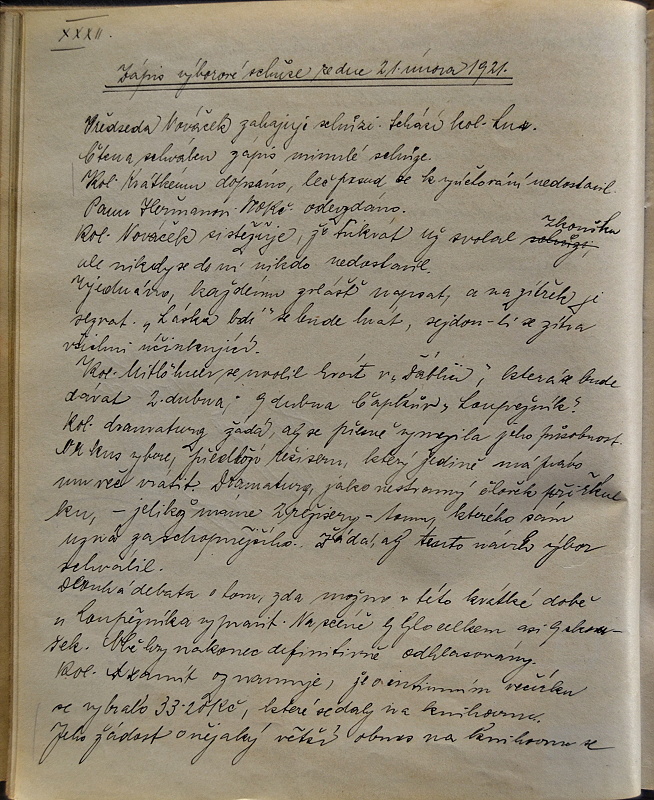 XXXII.
Zápis výborové schůze ze dne 21. února 1921.
Předseda Nováček zahajuje schůzi. Schází kol. Lux.
Čten a schválen zápis minulé schůze.
Kol. Krátkému dopsáno, leč posud se k vyúčtování nedostavil.
Panu Heřmanovi Kč odevzdáno.
Kol. Nováček si stěžuje, že třikrát už svolal schůzi, zkoušku
ale nikdy se do ní nikdo nedostavil.
Ujednáno, každému zvlášť napsat, a na zítřek je
sezvat. „Láska bdí" se bude hrát, sejdou-li se zítra
všichni účinkující.
Kol. Mitlöhner se uvolil hrát v „Ďáblu", která se bude
dávat 2. dubna, 9 dubna Čapkův „Loupežník".
Kol. dramaturg žádá, aby se přesně vymezila jeho působnost.
On kus vybere, předloží režiséru, který jedině má právo
mu věc vrátit. Dramaturg, jako nestranný člověk přiřkne
ku, – jelikož máme 2 režisery – tomu, kterého sám
uzná za schopnějšího. Žádá, aby tento návrh výbor
schválil.
Dlouhá debata o tom, zda možno v této krátké době
u Loupežníka vypravit. Na scéně by bylo celkem asi 9 zkou-
šek. Obě hry nakonec definitivně odhlasovány.
Kol. oznamuje, že o intimním večírku
se vybralo 33·20 Kč, které se daly na knihovnu.
Jeho žádost o nějaký větší obnos na knihovnu se